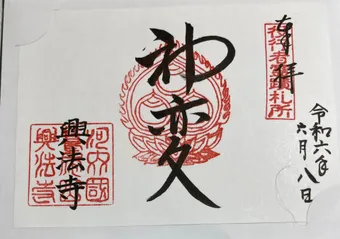 奉拝
役行者霊蹟札所
令和六年
六月八日
神変
興法寺
河内國
興法寺